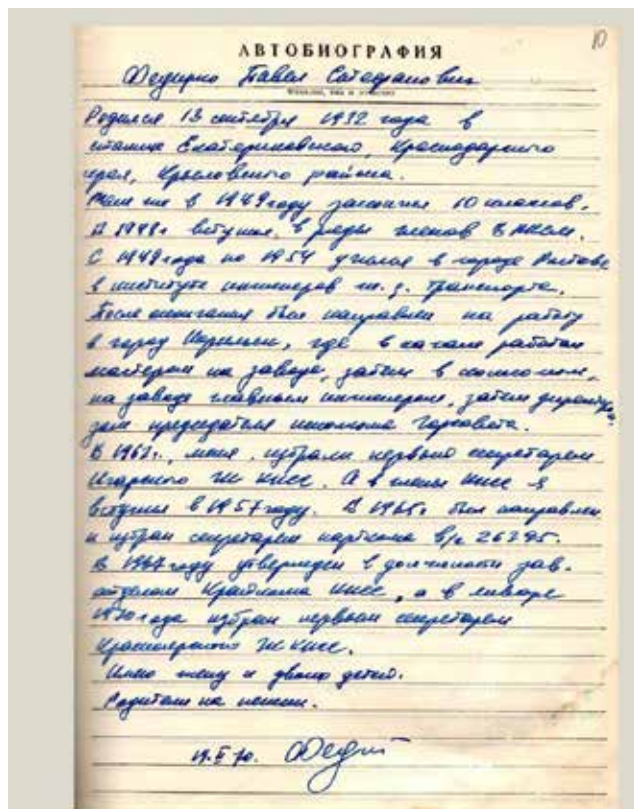 10
АВТОБИОГРАФИЯ
Федирко Павел Стефанович
Родился 13 сентября 1932 года в
станице Екатериновского, Краснодарского
края, Крыловского района.
Там же в 1949 году закончил 10 классов.
В 1948г вступил в ряды членов ВЛКСМ.
С 1949 года по 1954 учился в городе Ростове
в институте инженеров ж. д. транспорта.
После окончания был направлен на работу
в город Игарку, где в начале работал
мастером на заводе, затем в
на заводе главным инженером, затем директор,
зам председателя исполкома Горсовета.
В 1962г., меня избрали первым секретарем
Игарского ГК КПСС. А в члены КПСС я
вступил в 1957 году. В 1965г. был направлен
и избран секретарем парткома в/ч 26295.
В 1967 году утвержден в должности зав.
отделом Крайкома КПСС, а в январе
1970 года избран первым секретарем
Красноярского ГК КПСС.
Имею жену и двоих детей.
Родители на пенсии.
19.II 70.